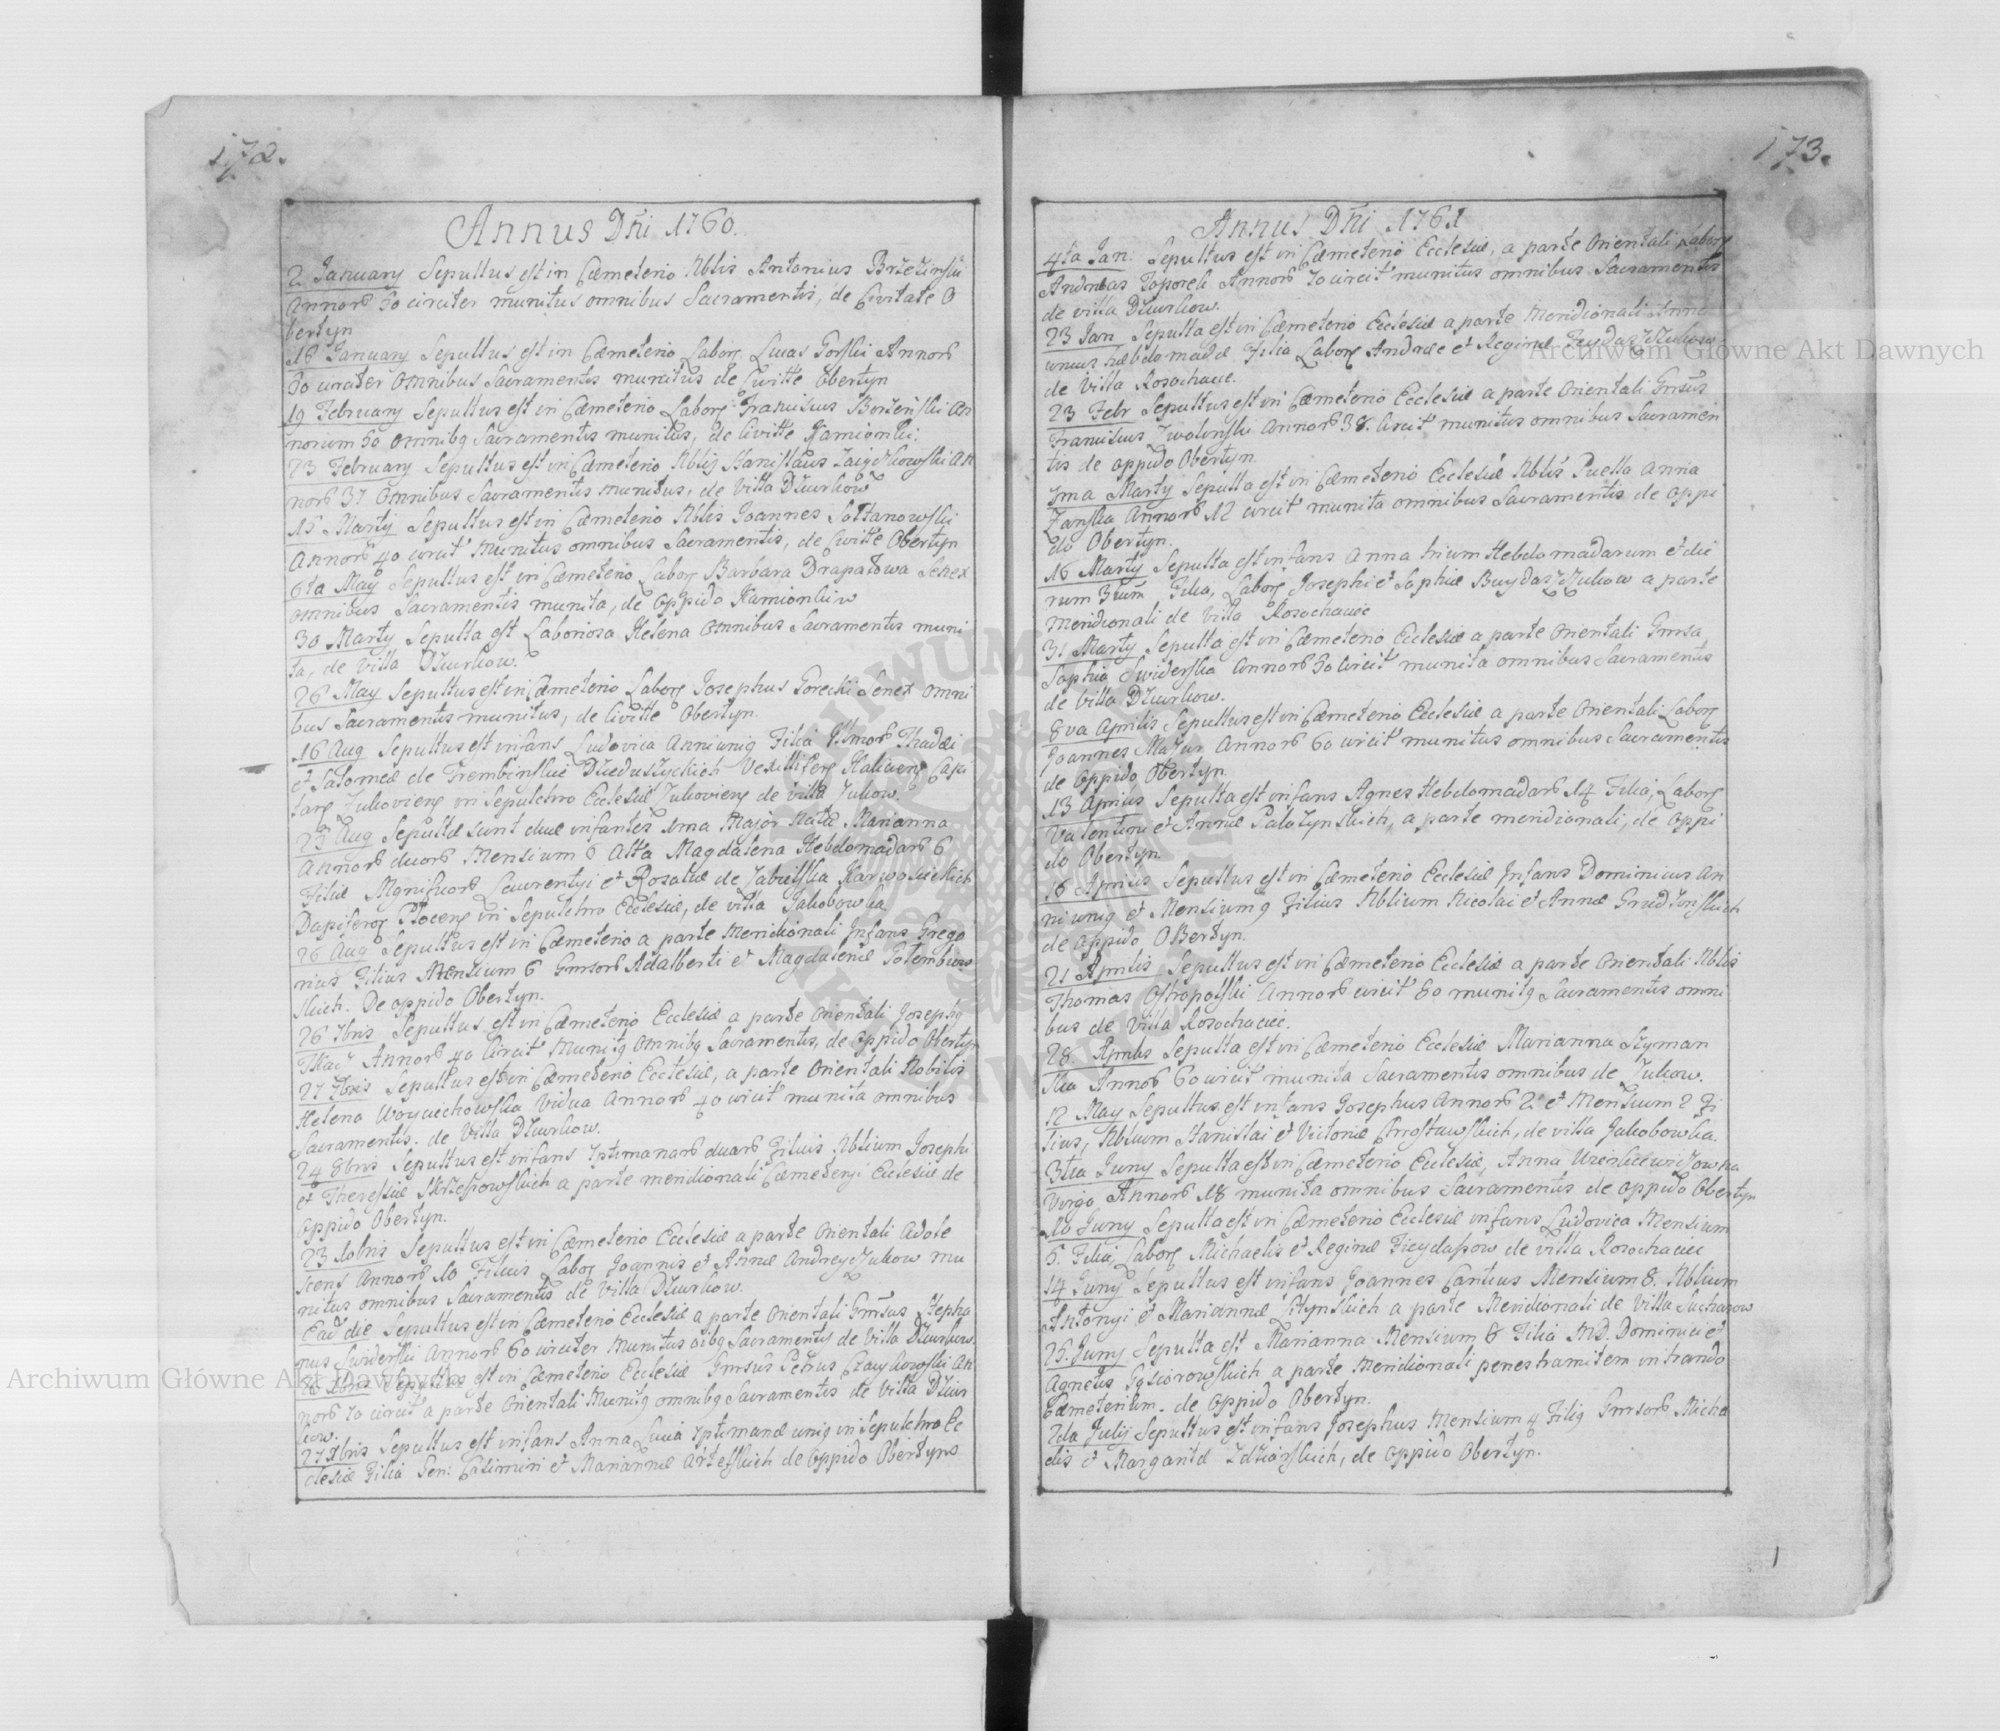 172.
Annus Dñi 1760.
2 January Sepultus est in Cæmeterio Nblis Antonius Brzezinski
Annorũ 50 circiter munitus omnibus Sacramentis, de Civitate O
bertyn
18 January Sepultus est in Cæmeterio Labors Lucas Gorski Annorũ
50 circiter omnibus Sacramentis munitus de Civitte Obertyn
19 February Sepultus est in Cæmeterio Labors Franciscus An
norum 50 omnibq Sacramentis munitus, de Civitte Kamionki.
23 February Sepultus est in Cæmeterio Nblis Stanislaus An
norũ 37 omnibus Sacramentis munitus, de Villa Dzurkow
15 Martij Sepultus est in Cæmeterio Nblis Joannes Soltanowski
Annorũ 40 circit munitus omnibus Sacramentis, de Civitte Obertyn
6ta May Sepultus est in Cæmeterio Labors Barbara Drapałowa Senex
omnibus Sacramentis munita, de oppido Kamionkiw
30 Marty Sepulta est Laboriosa Helena omnibus Sacramentis muni
ta, de Villa Dzurkow.
26 May Sepultus est in Cæmeterio Labors Josephus Gorecki Senex omni
bus Sacramentis munitus, de Civitte Obertyn.
16 Aug Sepultus est infans Ludovica Anni unig Filia Thaddei
et Salomeæ de Trembinskie Dzieduszyckich Vexilliferi Haliciens Capi
tars Zukoviens in Sepulchro Ecclesiæ Zukoviens de villa Zukow.
23 Aug Sepultæ sunt duæ infantes una Major Nata Marianna
Annorũ duorũ Mensium 6 Altâ Magdalena Hebdomadarũ 6
Filiæ Mgnificorũ Laurentyi et Rosaliæ de Zabielska Karwosieckich
Dapiferor Plocens in Sepulchro Ecclesiæ, de villa Jakobowka
26 Aug Sepultus est in Cæmeterio a parte Meridionali Infans Grego
rius Filius Mensium 6 Gnrsorũ Adalberti et Magdalenæ
skich. De oppido Obertyn.
26 7bris Sepultus est in Cæmeterio Ecclesiæ a parte Orientali Josephq
Tkacz Annorũ 40 Circit Munitq omnibq Sacramentis, de oppido Obertyn
27 7bris Sepultus est in Cæmeterio Ecclesiæ, a parte Orientali Nobilis
Helena Woyciechowska Vidua Annorũ 40 circit munita omnibus
Sacramentis. de Villa Dzurkow.
24 8bris Sepultus est infans duarũ Filius Nblium Josephi
et Theressiæ a parte meridionali Cæmeteryi Ecclesiæ de
oppido Obertyn.
23 Xbris Sepultus est in Cæmeterio Ecclesiæ a parte Orientali Adole
scens Annorũ 10 Filius Labors Joannis et Annæ Andreyczukow mu
nitus omnibus Sacramentis de Villa Dzurkow.
Eadẽ die Sepultus est in Cæmeterio Ecclesiæ a parte Orientali Gnrsus Stepha
nus Swiderski Annorũ 60 circiter Munitus oibq Sacramentis de Villa Dzurkow.
Sepultus est in Cæmeterio Ecclesiæ Gnrsus Petrus Czaykowski An
norũ 70 circit a parte Orientali Munitq omnibq Sacramentis de Villa Dzur
kow.
27 Xbris Sepultus est infans Anna Lucia unig in Sepulchro Ec
clesiæ Filia Gen: Casimiri et Mariannæ de oppido Obertyns
173.
Annus Dñi 1761
4ta Jan: Sepultus est in Cæmeterio Ecclesiæ, a parte Orientali Labors
Andreas Annorũ 70 circit munitus omnibus Sacramentis
de villa Dzurkow.
23 Jan Sepulta est in Cæmeterio Ecclesiæ a parte Meridionali Anna
unius hebdomadæ Filia Labors Andreæ et Reginæ
de Villa Rosochacie.
23 Febr Sepultus est in Cæmeterio Ecclesiæ a parte Orientali Gnrsus
Franciscus Zwolinski Annorũ 38. Circit munitus omnibus Sacramen
tis de oppido Obertyn.
7ma Marty Sepulta est in Cæmeterio Ecclesiæ Nblis Puella Anna
Zanska Annorũ 12 circit munita omnibus Sacramentis de oppi
do Obertyn.
16 Marty Sepulta est infans Anna trium Hebdomadarum et die
rum 3ũm Filia, Labors Josephi et Sophiæ a parte
Meridionali de Villa Rosochacie
31 Marty Sepulta est in Cæmeterio Ecclesiæ a parte Orientali Gnrsa,
Sophia Swiderska Annorũ 50 circit munita omnibus Sacramentis
de Villa Dzurkow.
8va Aprilis Sepultus est in Cæmeterio Ecclesiæ a parte Orientali Labors
Joannes Mazur Annorũ 60 circit munitus omnibus Sacramentis
de oppido Obertyn.
13 Aprilis Sepulta est infans Agnes Hebdomadarũ 14 Filia, Labors
Valentini et Annæ a parte meridionali, de oppi
do Obertyn.
16 Aprilis Sepultus est in Cæmeterio Ecclesiæ Infans Dominicus An
ni uniq et Mensium 9 Filius Nblium Nicolai et Annæ Grudzinskich
de oppido Obertyn.
21 Aprilis Sepultus est in Cæmeterio Ecclesiæ a parte Orientali Nblis
Thomas Ostropolski Annorũ circit 80 munitq Sacramentis omni
bus de Villa Rosochaciec.
28. Aprilis Sepulta est in Cæmeterio Ecclesiæ Marianna Szyman
ska Annorũ 60 circit munita Sacramentis omnibus de Zukow.
12 May Sepultus est infans Josephus Annorũ 2. et Mensium 2 Fi
lius, Nblium Stanislai et Victoriæ de villa Jakobowka.
3tia Juny Sepulta est in Cæmeterio Ecclesiæ, Anna
Virgo Annorũ 18 munita omnibus Sacramentis de oppido Obertyn
10 Juny Sepulta est in Cæmeterio Ecclesiæ infans Ludovica Mensium
5. Filia, Labors Michaelis et Reginæ de villa Rosochaciec
14 Juny Sepultus est infans Joannes Cantius Mensium 8. Nblium
Antonyi et Mariannæ a parte Meridionali de Villa
25. Juny Sepulta est Marianna Mensium 6 Filia MD. Dominici et
Agnetis Gąsiorowskich a parte Meridionali penes tramitem intrando
Cæmeterium. de oppido Obertyn.
2da Julij Sepultus est infans Josephus Mensium 4 Filiq Gnrsorũ Micha
elis et Margaritæ de oppido Obertyn.
Archiwum Główne Akt Dawnych
Archiwum Główne Akt Dawnych